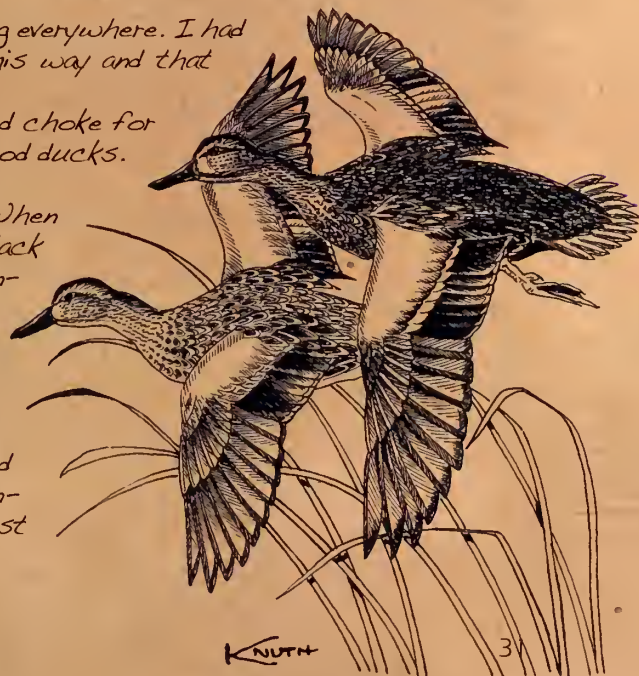 g everywhere. I had
his way and that
d choke for
od ducks.
When
ack
n-
d
n-
st
KNUTH
31